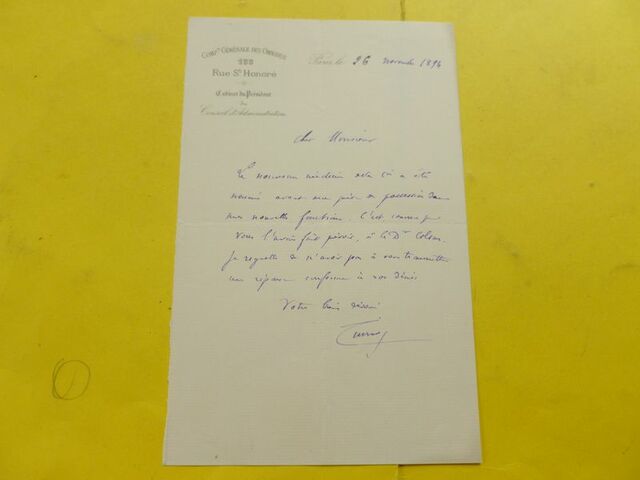 COMPie GÉNÉRALE DES OMNIBUS
Rue St Honoré
Cabinet du Président
du
Conseil d'Administration
Paris, le 26 novembre 1894
Cher Monsieur
Le nouveau médecin de la Cie a été
nommé avant ma prise de possession de
mes nouvelles fonctions. C'est comme je
vous l'avais fait prévoir, le Dr
Je regrette de n'avoir pas à vous transmettre
une réponse conforme à vos désirs
Votre bien dévoué